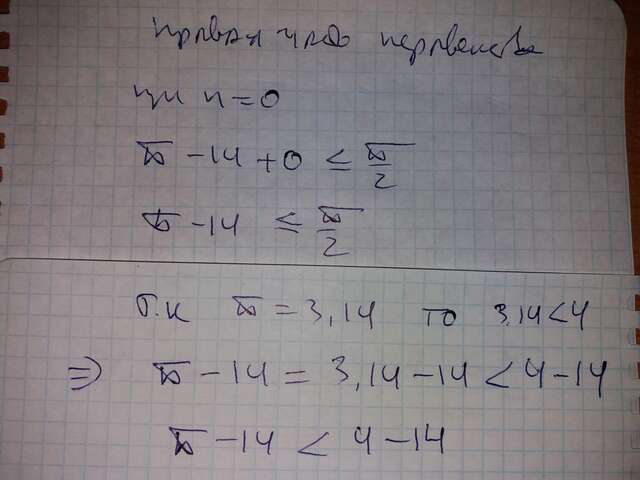 правая часть неравенства
при n=0
π - 14 + 0 ≤ π/2
π - 14 ≤ π/2
т.к π = 3,14 то 3,14<4
⇒ π - 14 = 3,14 - 14 < 4 - 14
π - 14 < 4 - 14